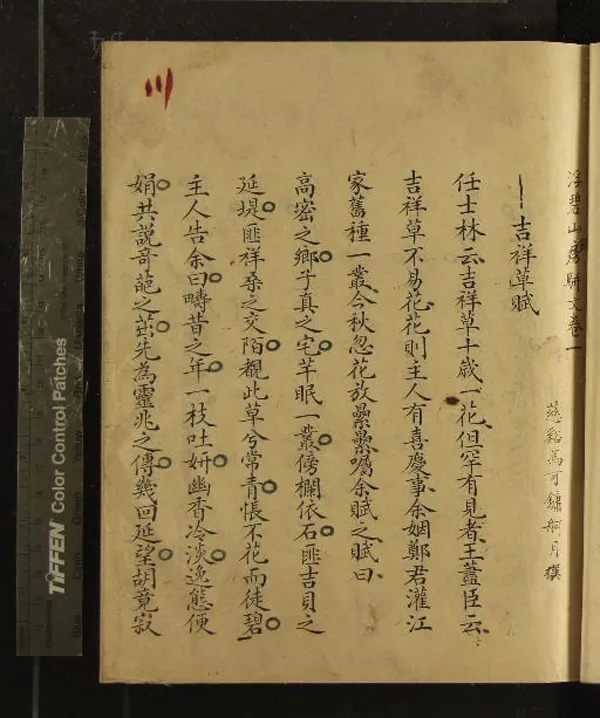 浮碧山房駢文卷一
慈谿馮可鏞舸月撰
吉祥草賦
任士林云吉祥草十歲一花但罕有見者王藎臣云
吉祥草不易花花則主人有喜慶事余姻鄭君灌江
家舊種一叢今秋忽花放纍纍囑余賦之賦曰
高密之鄉子真之宅芊眠一叢傍欄依石匪吉貝之
延堤匪祥桑之交陌觀此草兮常青悵不花而徒碧
主人告余曰疇昔之年一枝吐妍幽香冷淡逸態便
娟共說奇葩之茁先為靈兆之傳幾回延望胡竟寂
川
TIFFEN Color Control Patches